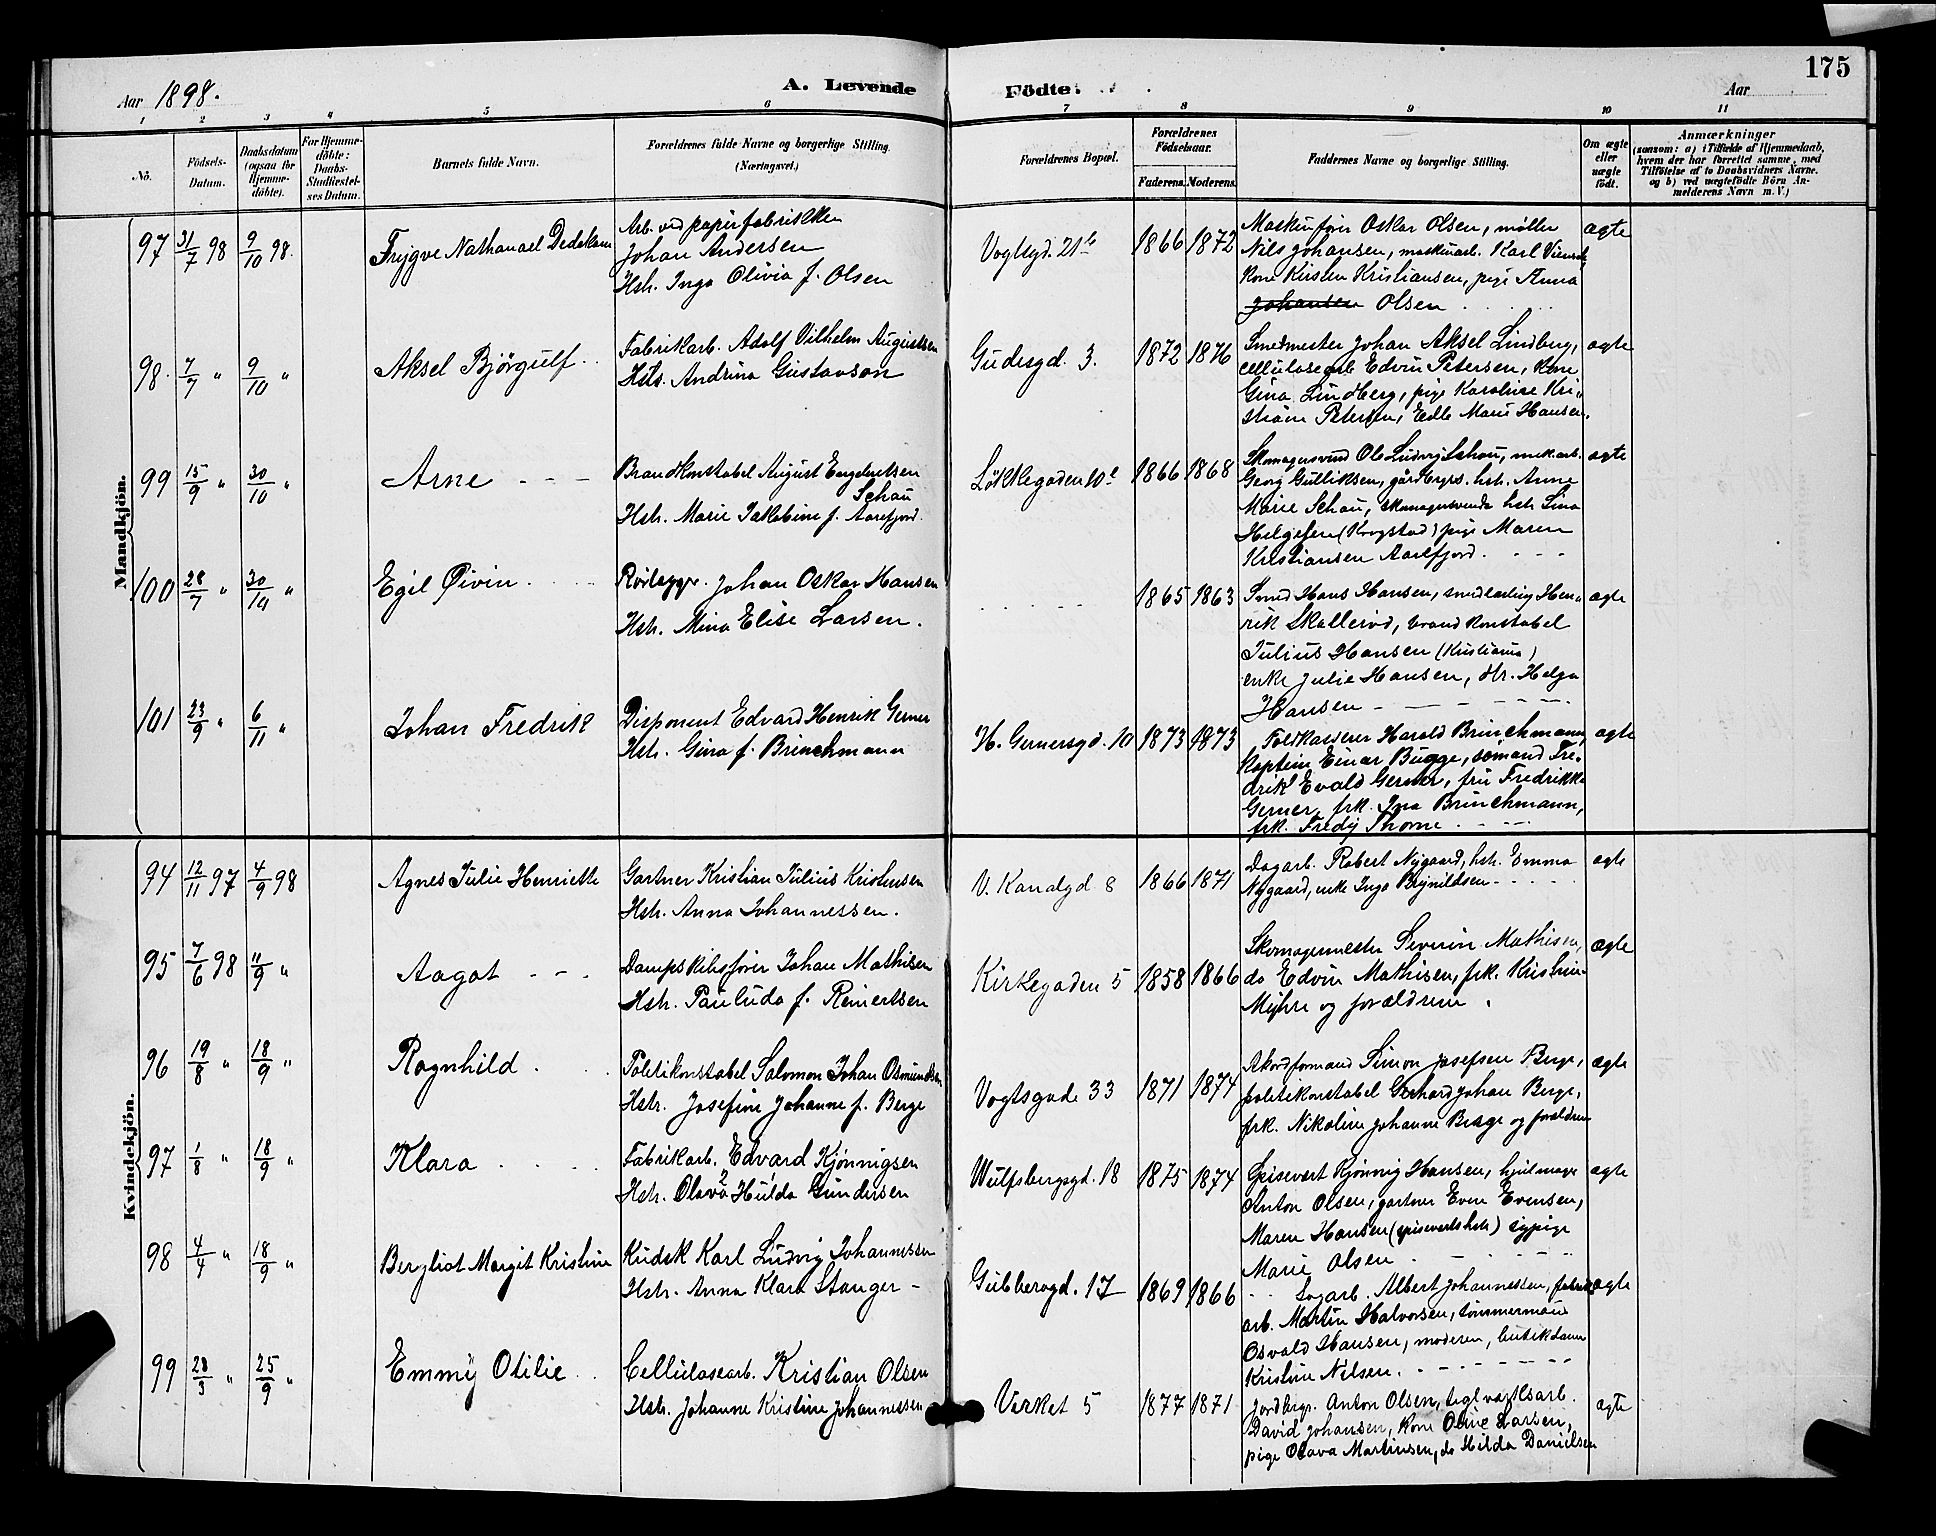 175
Aar 1898.
A. Levende
Födte.
Aar
1
2
3
4
5
6
7
8
9
10
11
No.
Födsels-
Datum.
Daabsdatum
(ogsaa for
Hjemme-
döbte).
For Hjemme-
döbte:
Daabs-
Stadfæstel-
ses Datum.
Barnets fulde Navn.
Forældrenes fulde Navne og borgerlige Stilling.
(Næringsvei.)
Forældrenes Bopæl.
Forældrenes
Födselsaar.
Faderens.
Moderens.
Faddernes Navne og borgerlige Stilling.
Om ægte
eller
uægte
født.
Anmærkninger
(saasom: a) i Tilfælde af Hjemmedaab,
hvem der har forrettet samme, med
Tilföielse af to Daabsvidners Navne.
og b) ved uægtefödte Börn An-
melderens Navn m. V.)
Mandkjön.
97 31/7 98 9/10 98. Trygve Nathanael Dedekam
Arb. ved papirfabrikken
Johan Andersen
Hstr. Inga Olivia f. Olsen
Vogtsgd. 21b 1866 1872
Maskinfører Oskar Olsen, møller
Nils Johansen, maskinarb. Karl
Kone Kirsten Kristiansen, pige Anna
Johansen Olsen
ægte
98. 7/7 " 9/10 " Aksel Bjørgulf
Fabrikarb. Adolf Vilhelm Augustsen
Hstr. Andrina Gustavson
Gudesgd. 3. 1872 1876
Smedmester Johan Aksel Lindberg,
cellulosearb Edvin Petersen, Kone
Gina Lindberg, pige Karoline Kri-
stiane Petersen, Edle Marie Hansen.
ægte
99 15/9 " 30/10 " Arne
Brandkonstabel August Engebretsen
Schau
Hstr. Marie Jakobine f. Aarefjord.
Løkkegaden 10c 1866 1868
Skomagersvend Ole Ludvig Schau, mek.arb.
Georg Gulliksen, gårdbrgrs. hstr. Anne
Marie Schau, skomagersvends hstr Lina
Helgesen (Krogstad) pige Maren
Kristiansen Aarefjord.
ægte
100 28/7 " 30/10 " Egil Øivin
Rørlægger Johan Oskar Hansen
Hstr. Mina Elise Larsen.
1865 1863
Smed Hans Hansen, smedlærling Hen-
rik Skallerød, brandkonstabel
Julius Hansen (Kristiania)
enke Julie Hansen, Hr. Helga
Hansen
ægte
101 23/9 " 6/11 " Johan Fredrik
Disponent Edvard Henrik Gerner
Hstr. Gina f. Brinchmann
H. Gernersgd. 10 1873 1873
Toldkasserer Harald Brinchmann,
Kaptein Einar Bugge, sømand Fre-
drik Evald Gerner, fru Fredrikke
Gerner, frk. Ina Brinchmann,
frk. Fredy Thorne
ægte
Kvindekjön.
94 12/11 97 4/9 98 Agnes Julie Henriette
Gartner Kristian Julius Kristensen
Hstr. Anna Johannessen.
V. Kanalgd 8 1866 1871
Dagarb. Robert Nygaard, hstr. Emma
Nygaard, enke Inga Brynildsen
ægte
95 7/6 98 11/9 " Aagot
Dampskibsfører Johan Mathisen
Hstr. Paulinda f. Reinertsen
Kirkegaden 5 1858 1866
Skomagermester Severin Mathisen,
do Edvin Mathisen, frk. Kristine
Myhre og forældrene.
ægte
96 19/8 " 18/9 " Ragnhild
Politikonstabel Salomon Johan Osmundsen
Hstr. Josefine Johanne f. Berge
Vogtsgade 33 1871 1874
Akordformand Simon Josefsen Berge,
politikonstabel Gerhard Johan Berge,
frk. Nikoline Johanne Berge og forældrene
ægte
97 1/8 " 18/9 " Klara
Fabrikarb. Edvard Kjønnigsen
Hstr. Olava Hulda Gundersen
Wulfsbergsgd. 18 1875 1874
Spisevert Kjønnig Hansen, hjulmager
Anton Olsen, gartner Even Evensen,
Maren Hansen (spisevertshstr) sypige
Marie Olsen
ægte
98 4/4 " 18/9 " Bergliot Margit Kristine
Kudsk Karl Ludvig Johannessen
Hstr. Anna Klara Stanger
Gubberogd. 17 1869 1866
Sagarb. Albert Johannessen, fabrik
arb. Martin Halvorsen, tømmermand
Osvald Hansen, moderen, butikdame
Kristine Nilsen.
ægte
99 23/3 " 25/9 " Emmy Otilie
Cellulosearb. Kristian Olsen
Hstr. Johanne Kristine Johannessen
Verket 5 1877 1871
Jordbrgr. Anton Olsen, teglværksarb.
David Johansen, Kone Oline Larsen,
pige Olava Martinsen, do Hilda Danielsen
ægte